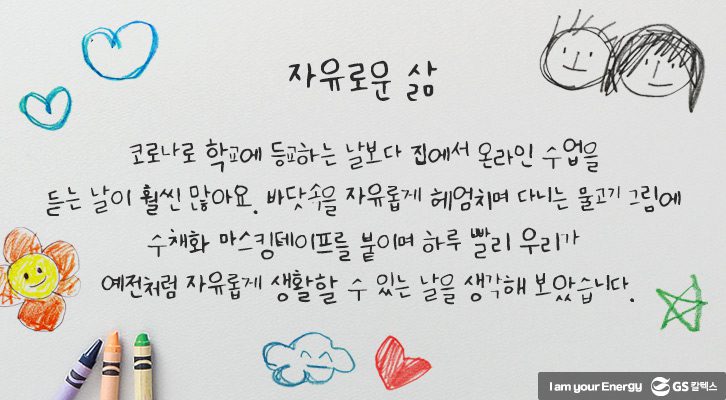 자유로운 삶
코로나로 학교에 등교하는 날보다 집에서 온라인 수업을
듣는 날이 훨씬 많아요. 바닷속을 자유롭게 헤엄치며 다니는 물고기 그림에
수채화 마스킹테이프를 붙이며 하루 빨리 우리가
예전처럼 자유롭게 생활할 수 있는 날을 생각해 보았습니다.
I am your Energy GS칼텍스